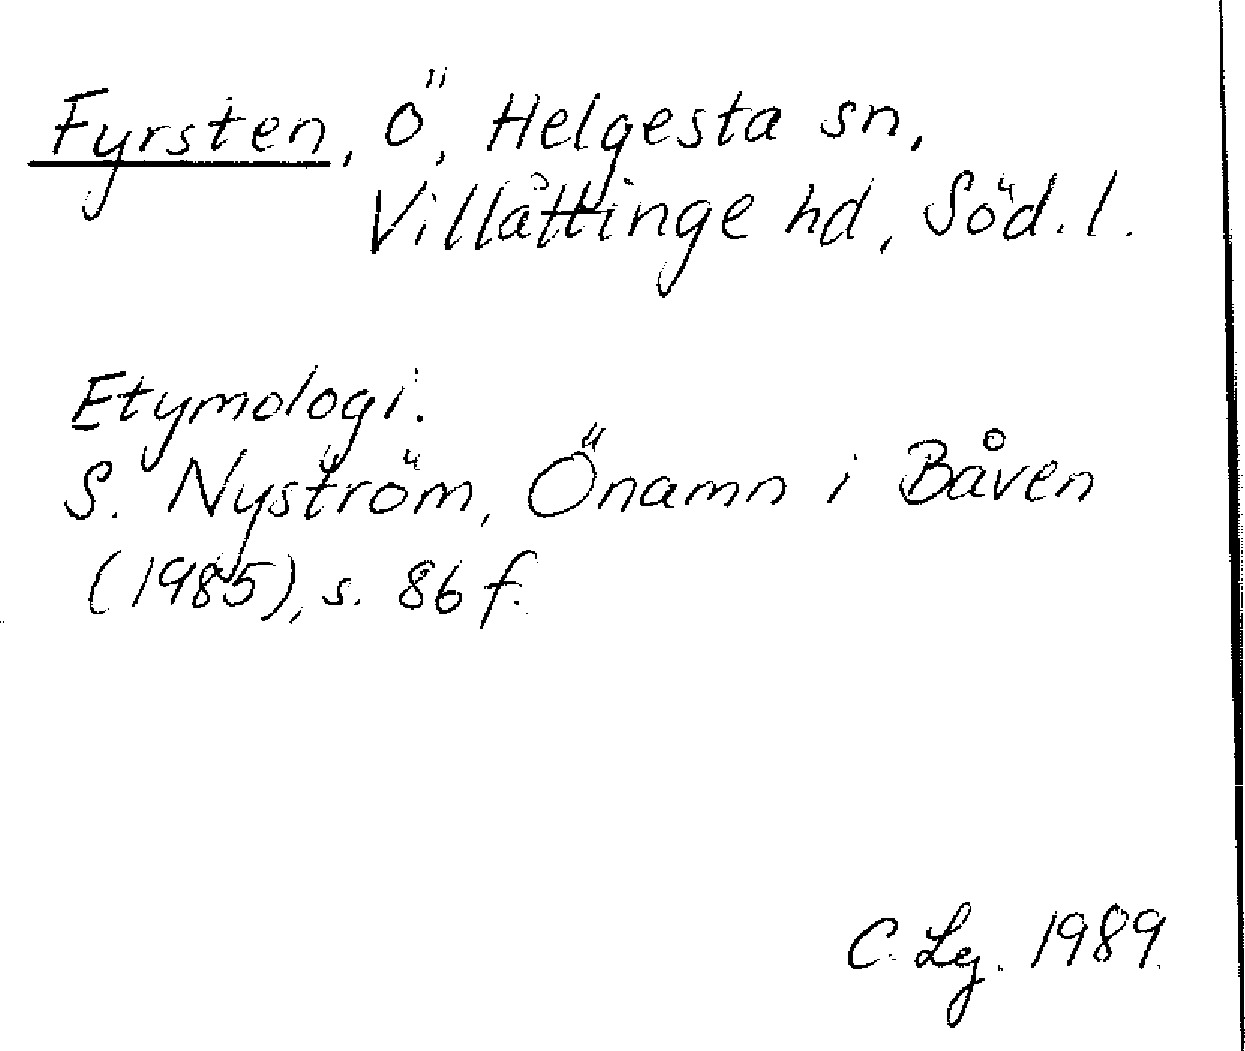 Fyrsten, ö, Helgesta sn,
Villåttinge hd, Söd. l.
Etymologi.
S. Nyström, Önamn i Båven
(1985), s. 86 f.
C. Lg. 1989